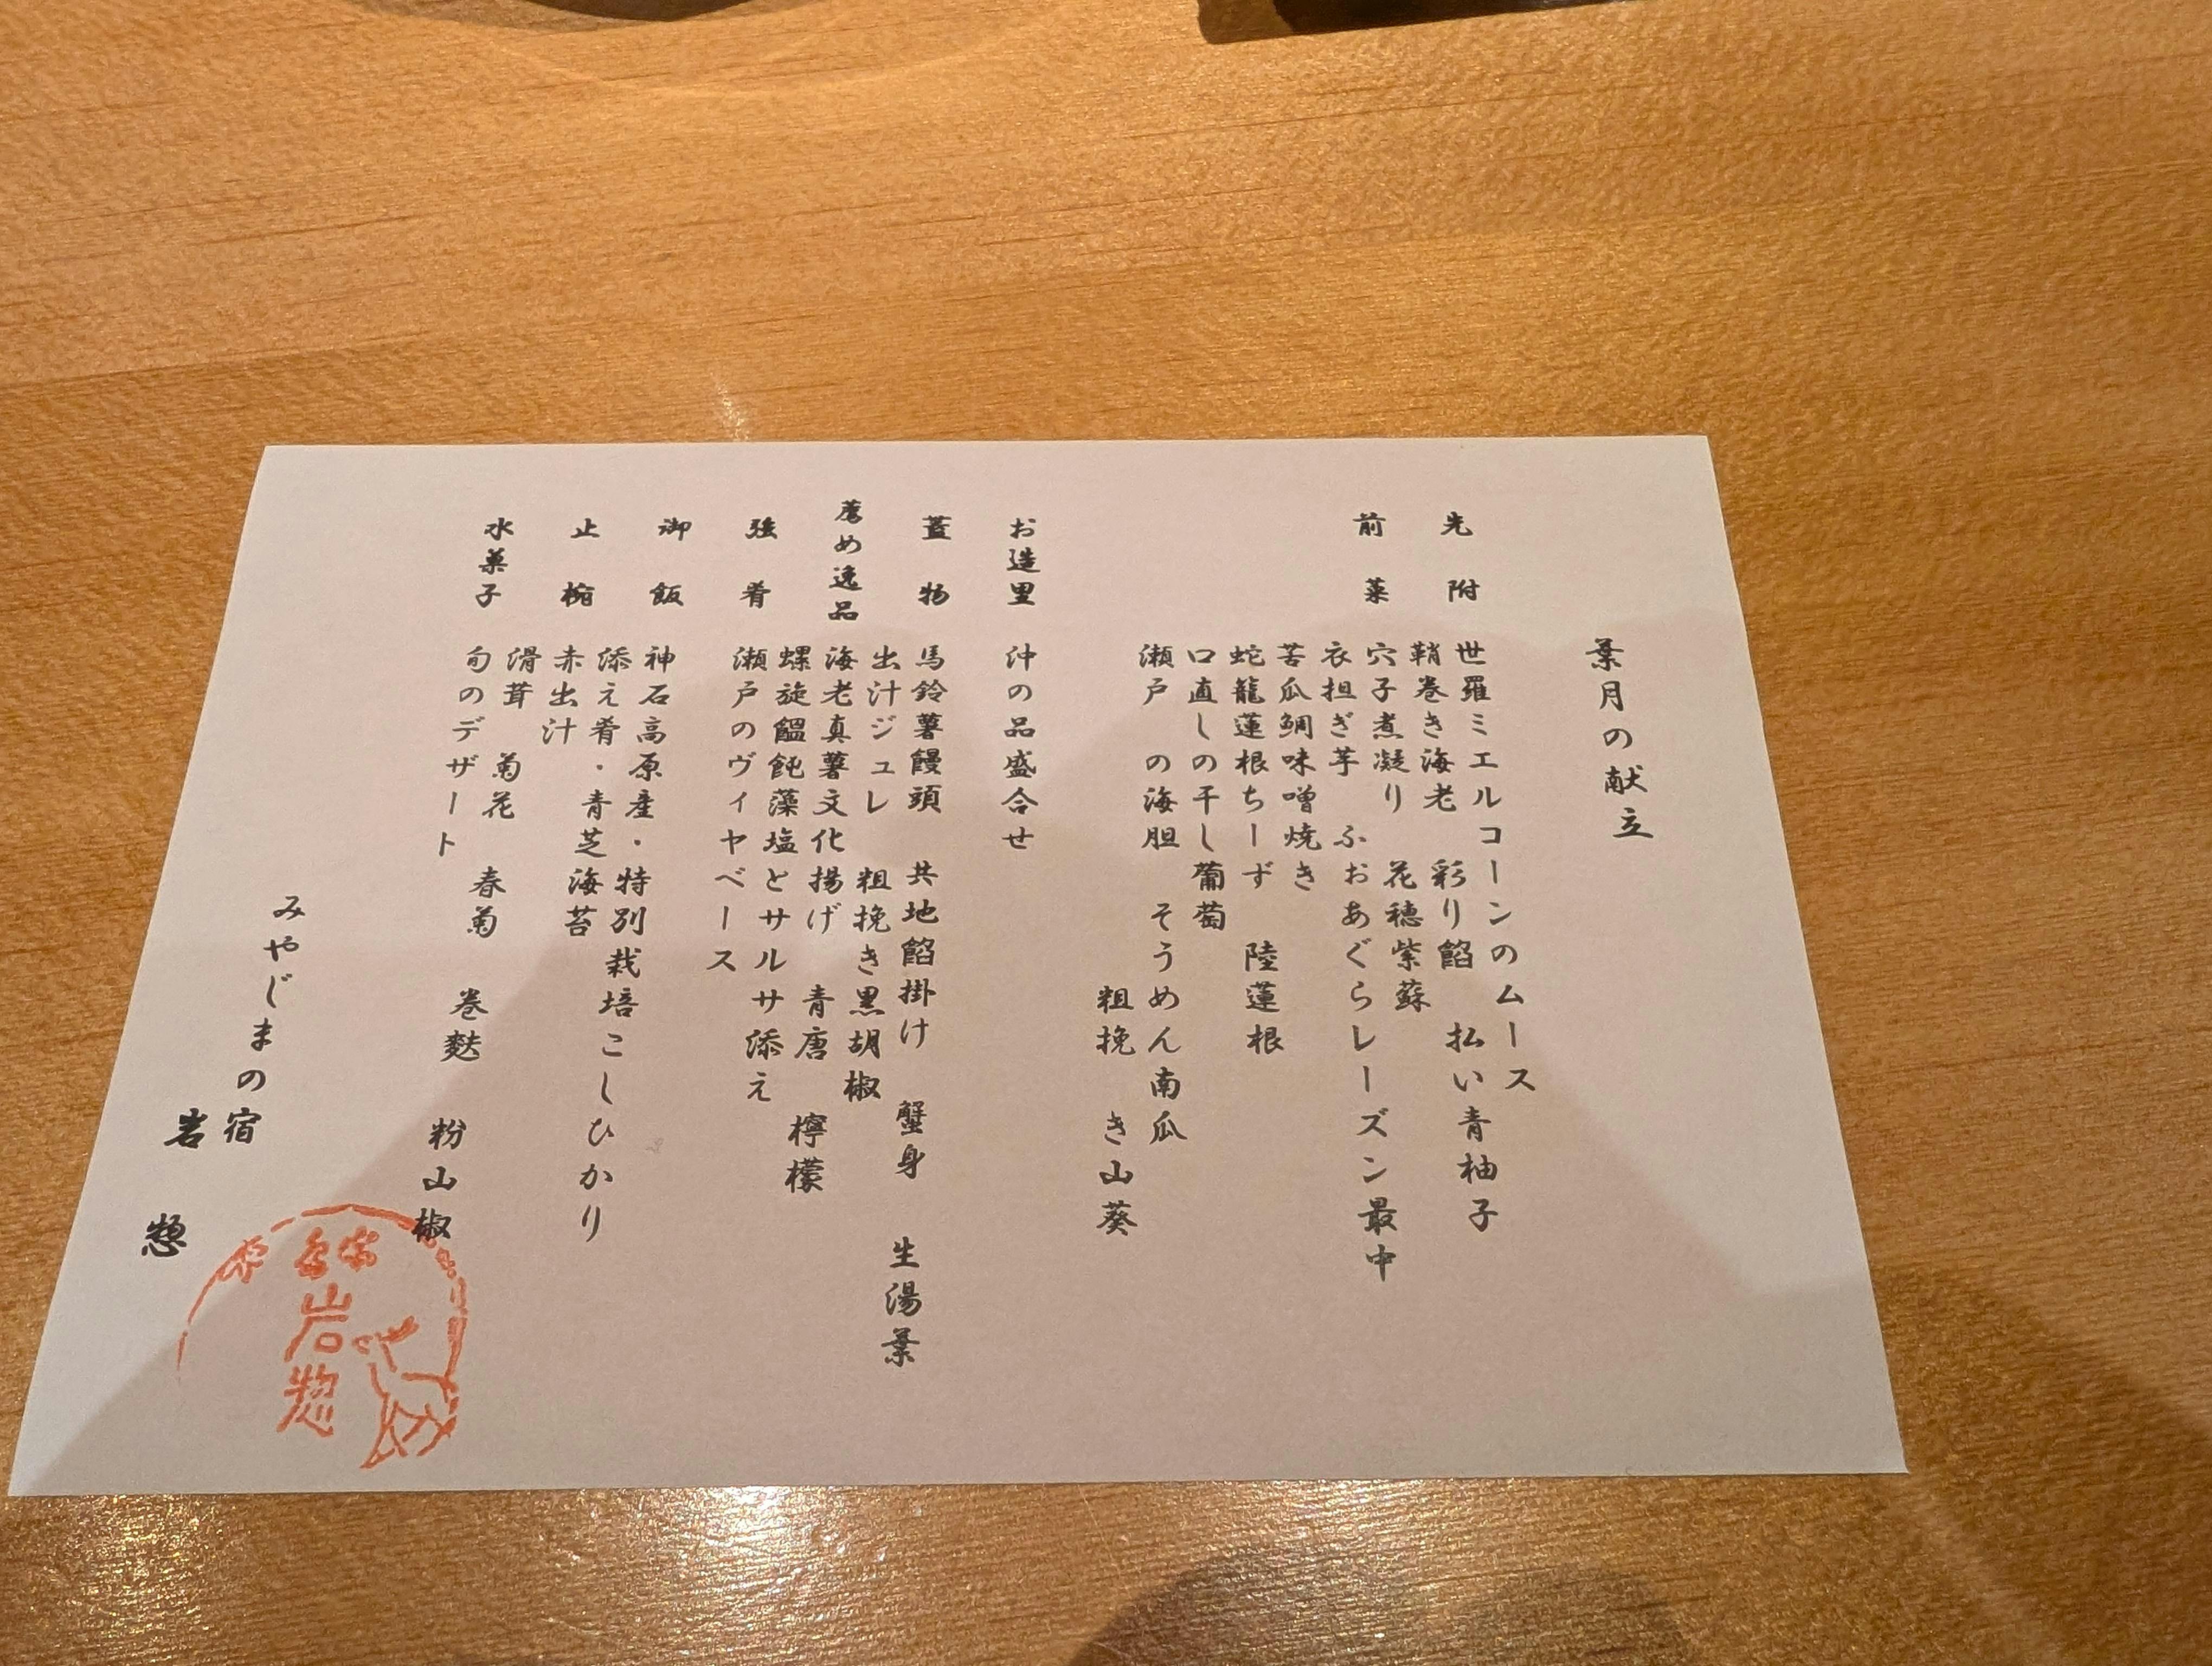 葉月の献立
先附 世羅ミエルコーンのムース
鞘巻き海老 彩り餡 払い青柚子
前菜 穴子煮凝り 花穂紫蘇
衣担ぎ芋 ふおあぐらレーズン最中
苦瓜鯛味噌焼き
蛇籠蓮根ちーず 陸蓮根
口直しの干し葡萄
瀬戸の海胆 そうめん南瓜
粗挽き山葵
お造里 沖の品盛合せ
蓋物 馬鈴薯饅頭 共地餡掛け 蟹身 生湯葉
出汁ジュレ 粗挽き黒胡椒
薦め逸品 海老真薯文化揚げ 青唐 檸檬
螺旋饂飩藻塩とサルサ添え
強肴 瀬戸のヴィヤベース
御飯 神石高原産・特別栽培こしひかり
添え肴・青芝海苔
止椀 赤出汁
滑茸 菊花 春菊 巻麩 粉山椒
水菓子 旬のデザート
みやじまの宿
岩惣
岩惣